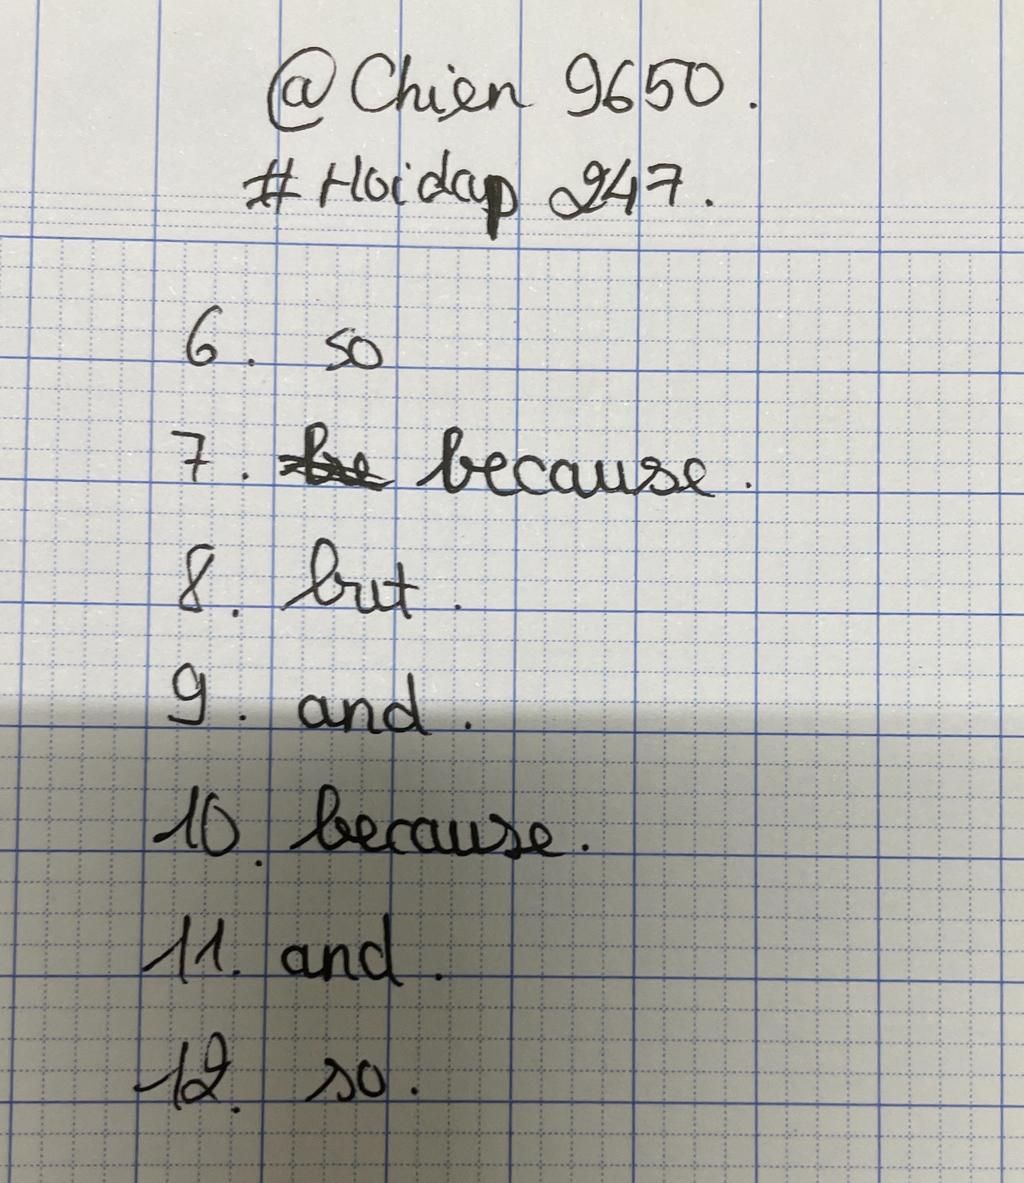 @Chien 9650.
#Hoidap 247.
6. so
7. because.
8. but.
9. and.
10. because.
11. and.
12. so.